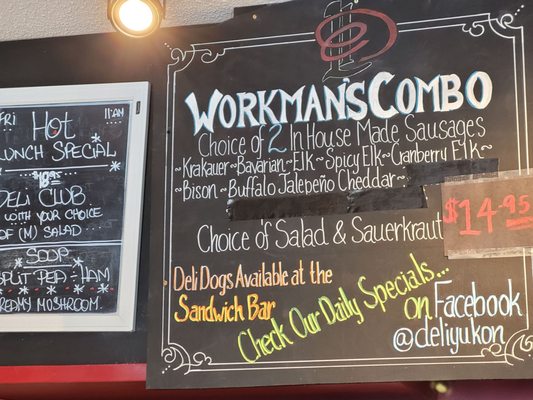 FRI 11AM
Hot
LUNCH SPECIAL
DELI CLUB
WITH YOUR CHOICE
OF (M) SALAD
SOUP
SPLIT PEA - HAM
CREAMY MUSHROOM
WORKMAN'S COMBO
Choice of 2 In House Made Sausages
~Krakauer~Bavarian~Elk~Spicy Elk~Cranberry Elk~
~Bison~Buffalo Jalepeño Cheddar~
$14.95
Choice of Salad & Sauerkraut
Deli Dogs Available at the
Sandwich Bar
Check Our Daily Specials...
on Facebook
@deliyukon